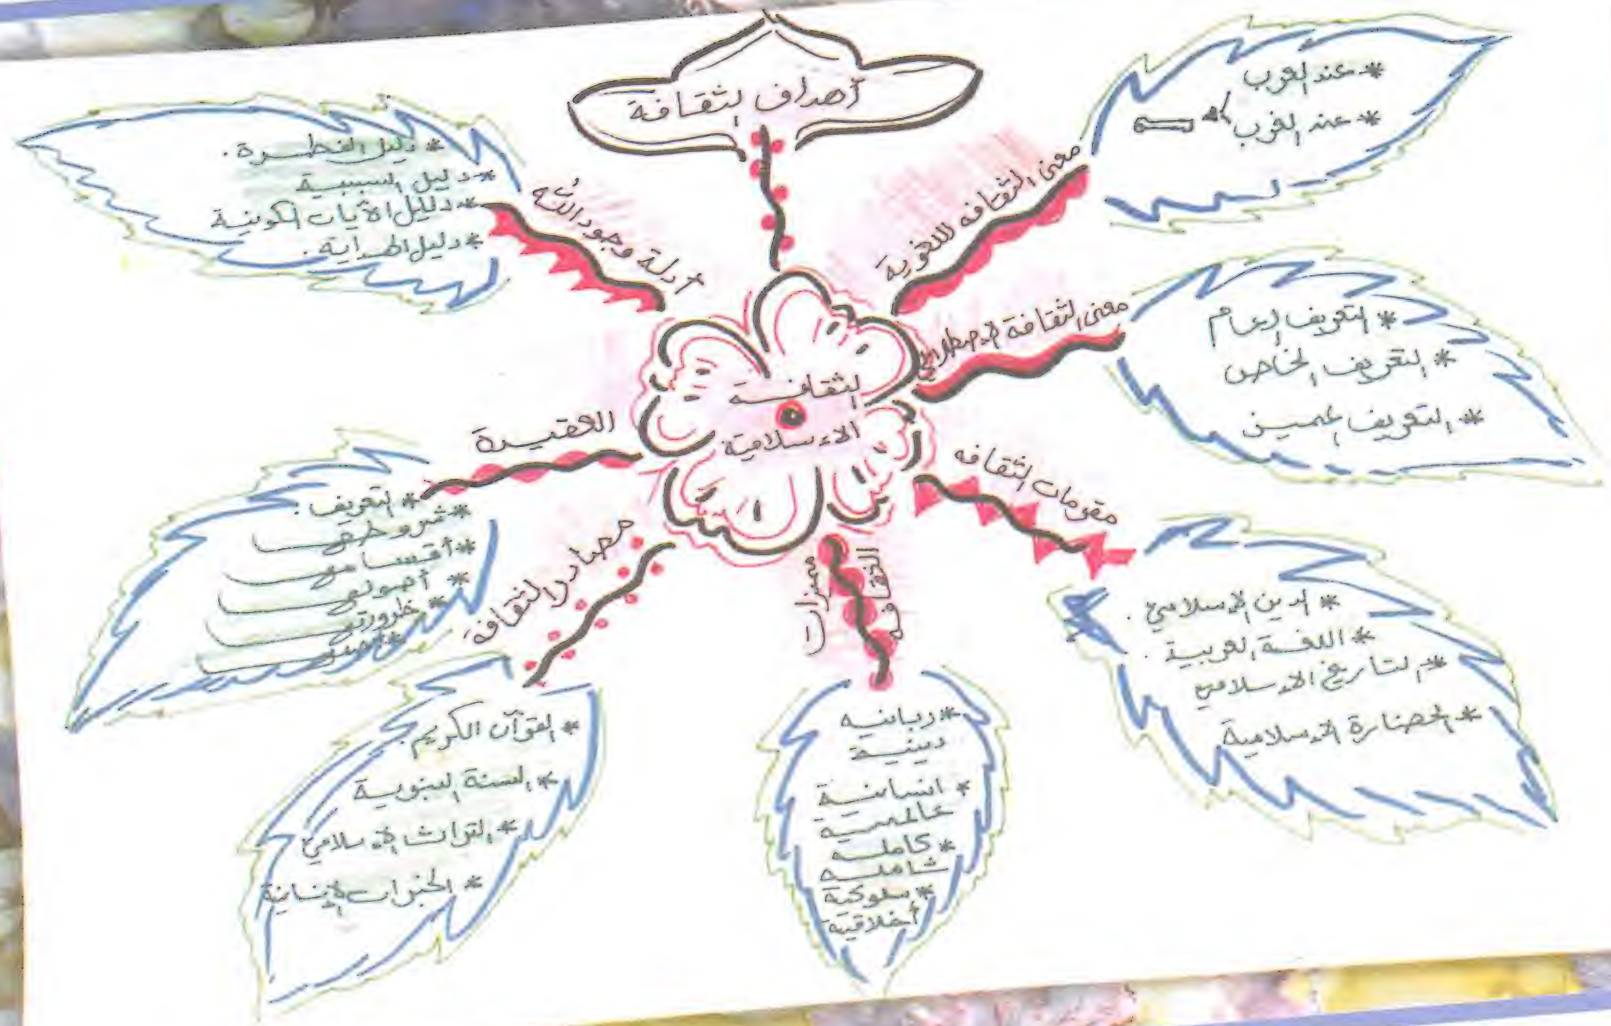 أهداف الثقافة
الثقافة
الاءسلامية
معنى الثقافه اللغوية
* عند العرب
* عند الغرب
معنى الثقافة الاصطلاحي
* التعريف العام
* التعريف الخاص
* التعريف
مقومات الثقافه
* الدين الاسلامي.
* اللغة العربية.
* التاريخ الاءسلامي
* الحضارة الاءسلامية
مميزات
الثقافه
* ربانيه
دينية
* انسانية
عالمية
* كامله
شامله
* سلوكية
أخلاقية
مصادر الثقافة
* القرآن الكريم.
* السنة النبوية
* التراث الاءسلامي
* الخبرات الإنسانية
العقيدة
* التعريف.
* شروطها
* أقسامها
* أصولها
* ضرورتها
أدلة وجود الله
* دليل الفطرة.
* دليل السببية
* دليل الآيات الكونية
* دليل الهداية.